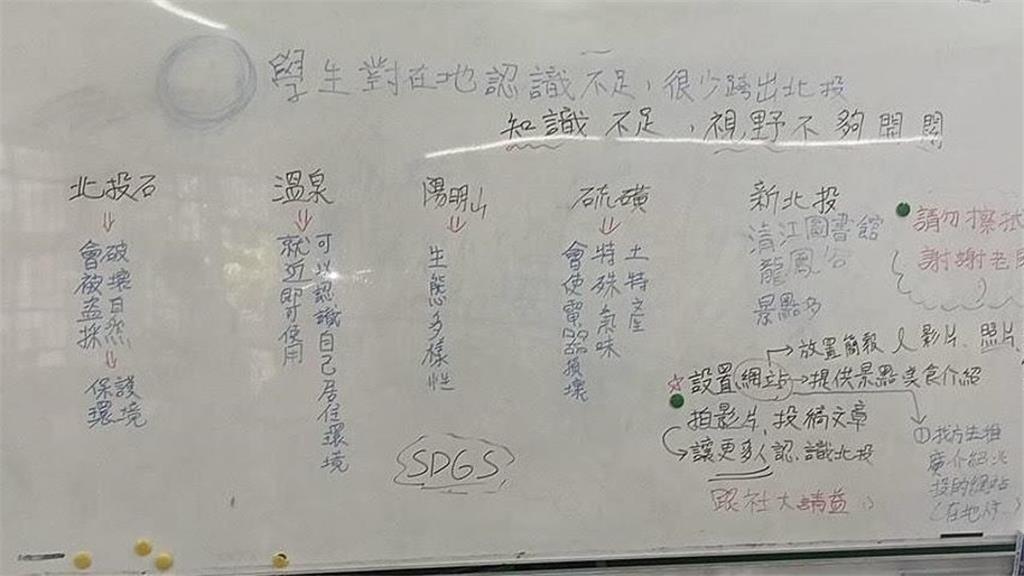 學生對在地認識不足,很少跨出北投
知識不足,視野不夠開闊
北投石
破壞自然
會被盜採
保護
環境
溫泉
可以認識自己居住環境
就近即可使用
陽明山
生態多樣性
硫磺
土特產
特殊氣味
會使電器損壞
新北投
清江圖書館
龍鳳谷
景點多
請勿擦拭
謝謝老師
☆設置網站
→放置簡報 影片、照片
→提供景點美食介紹
拍影片、投稿文章
→讓更多人認識北投
跟社大請益
①找方法推
廣介紹北
投的網站
(在地人...)
SDGS